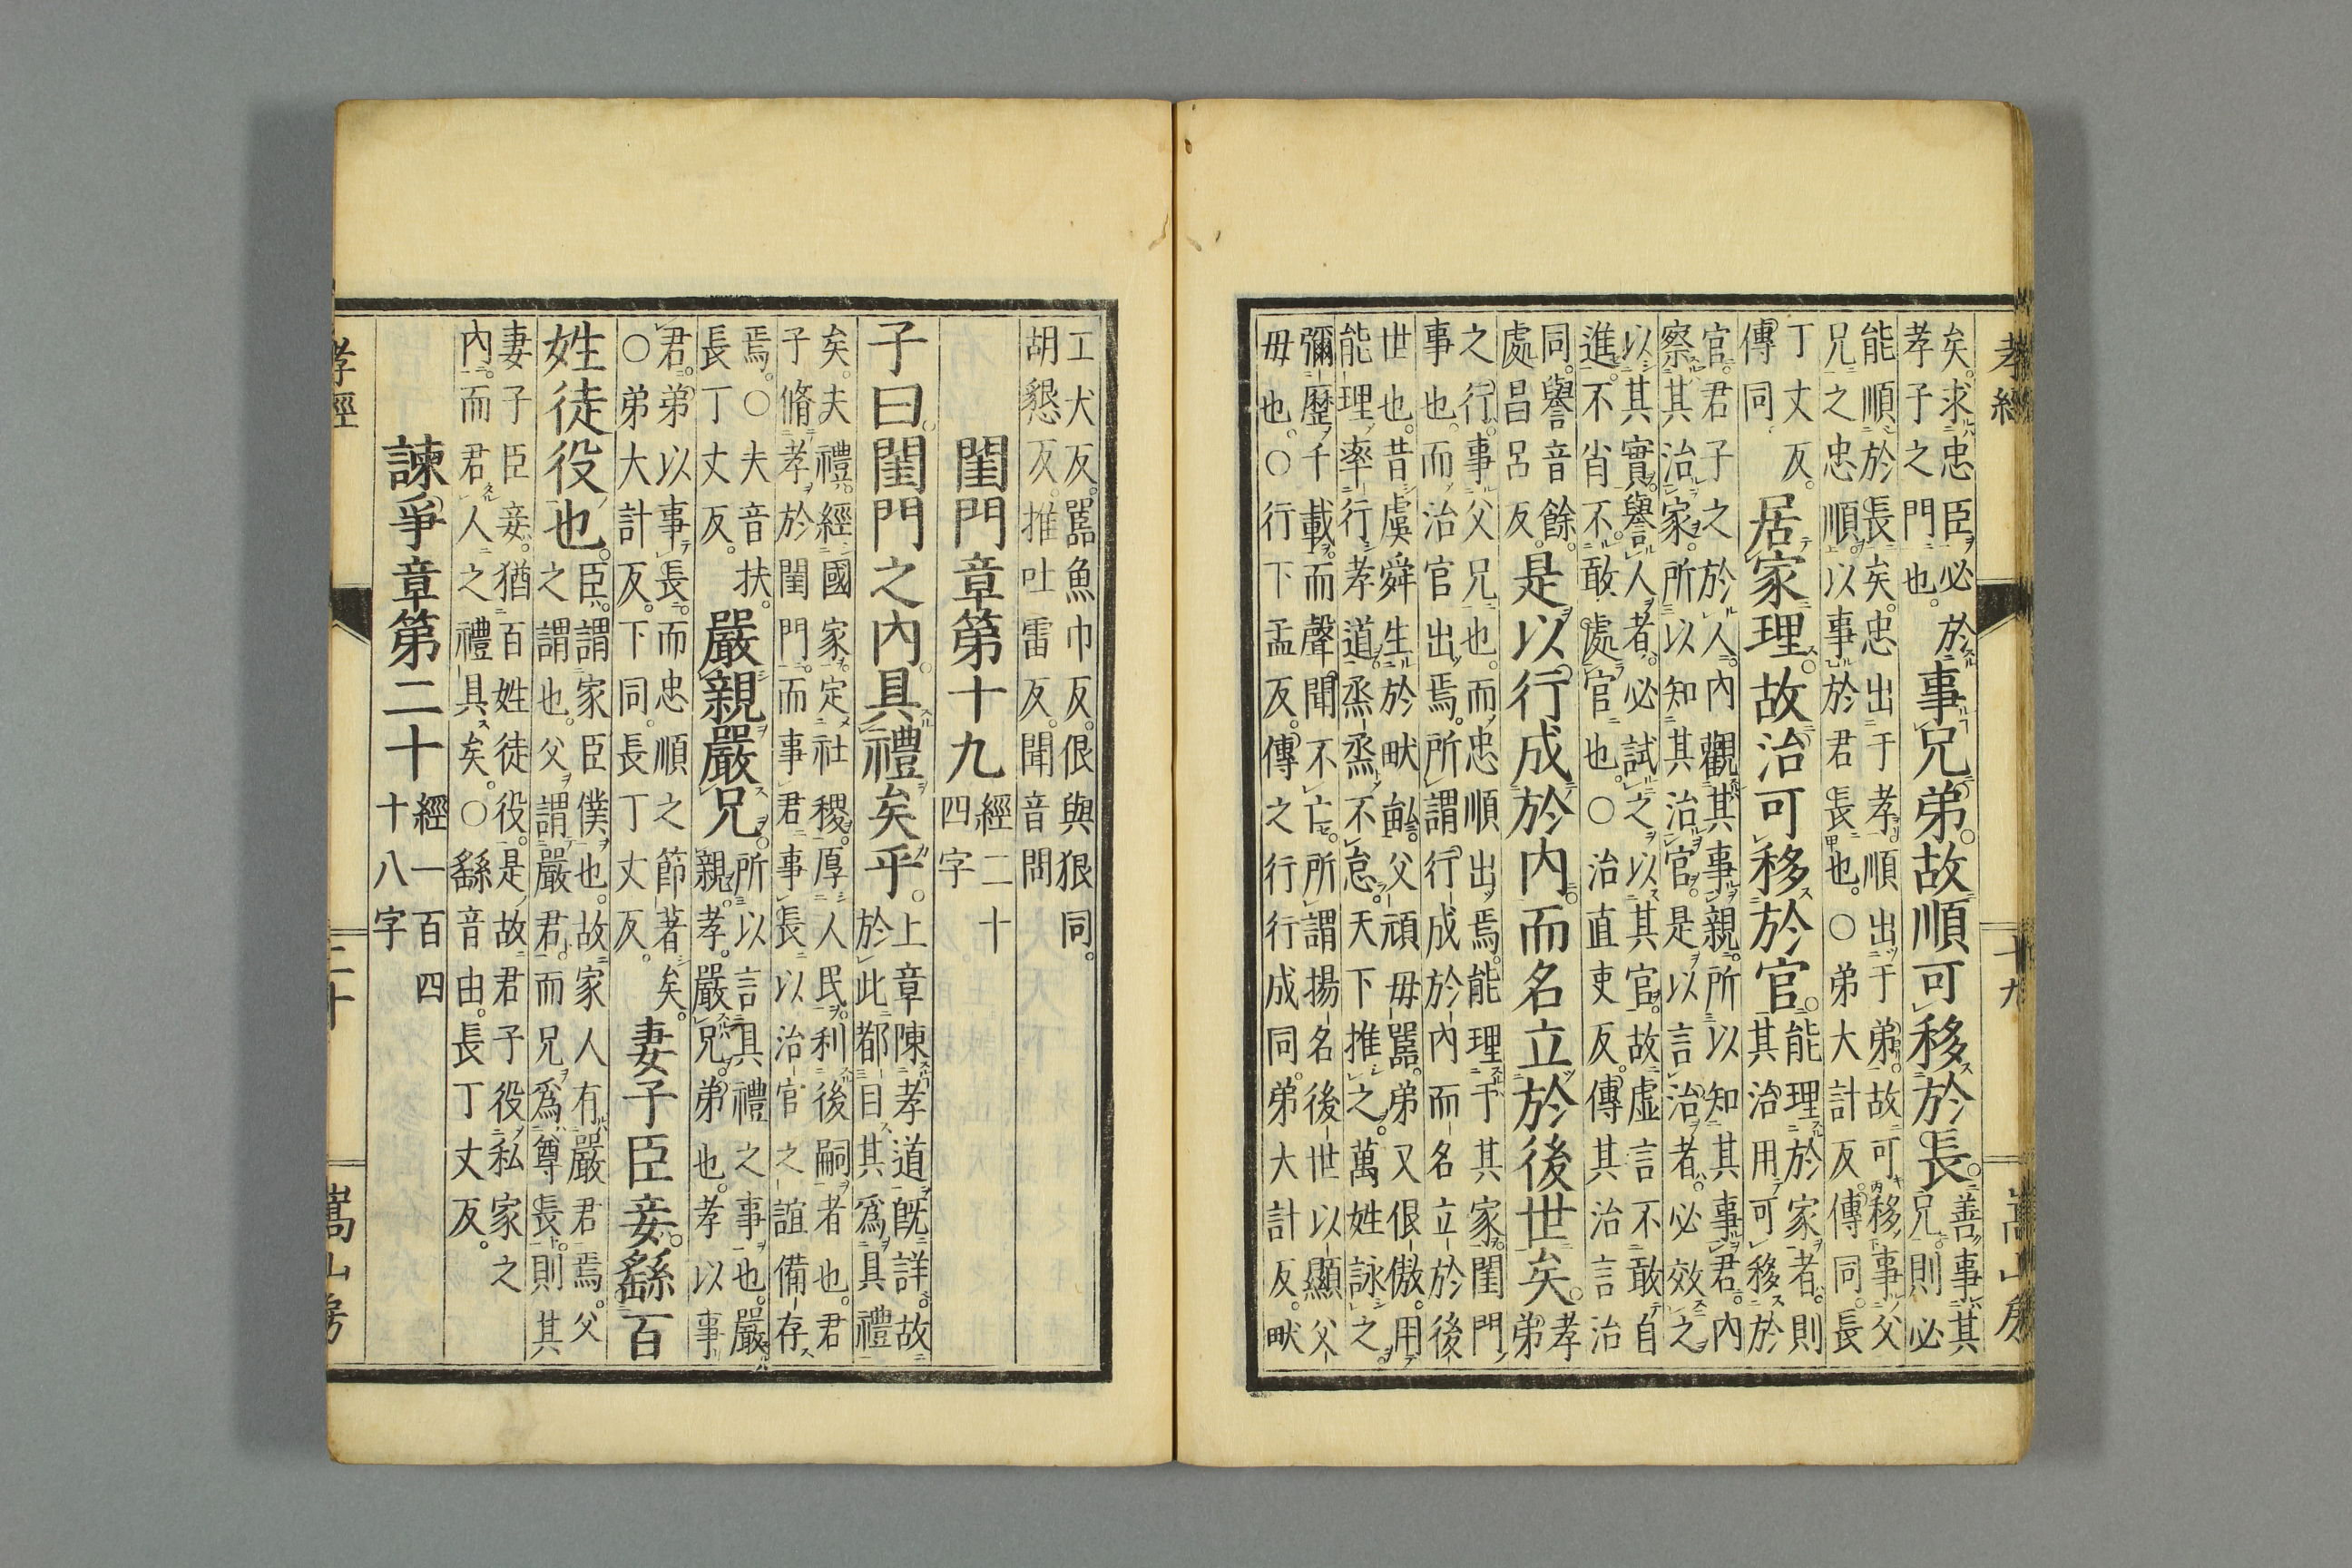 孝經
十九
嵩山房
矣。求忠臣必於
孝子之門也。
事兄弟。故順可移於長。
善事其
兄。則必
能順於長矣。忠出于孝。順出于弟。故可移事父
兄之忠順。以事於君長也。○弟大計反。傳同。長
丁丈反。
傳同。
居家理。故治可移於官。
能理於家者。則
其治用可移於
官。君子之於人。內觀其事親。所以知其事君。內
察其治家。所以知其治官。是以言治者。必效之
以其實。譽人者。必試之以其官。故虛言不敢自
進。不肖不敢處官也。○治直吏反。傳其治言治
同。譽音餘。
處昌呂反。
是以行成於內。而名立於後世矣。
孝
弟
之行。事父兄也。而忠順出焉。能理于其家。閨門
事也。而治官出焉。所謂行成於內而名立於後
世也。昔虞舜生於畎畝。父頑毋嚚。弟又佷傲。用
能理率行孝道。烝烝不怠。天下推之。萬姓詠之。
彌歷千載。而聲聞不亡。所謂揚名後世以顯父
毋也。○行下孟反。傳之行行成同。弟大計反。畎
工犬反。嚚魚巾反。佷與狠同。
胡懇反。推吐雷反。聞音問
閨門章第十九
經二十
四字
子曰。閨門之內。具禮矣乎。
上章陳孝道既詳。故
於此都目其爲具禮
矣。夫禮。經國家。定社稷。厚人民。利後嗣者也。君
子脩孝於閨門。而事君事長以治官之誼備存
焉。○夫音扶。
長丁丈反。
嚴親嚴兄。
所以言具禮之事也。嚴
親。孝。嚴兄。弟也。孝以事
君。弟以事長。而忠順之節著矣。
○弟大計反。下同。長丁丈反。
妻子臣妾。繇百
姓徒役也。
臣。謂家臣僕也。故家人有嚴君焉。父
之謂也。父謂嚴君。而兄爲尊長。則其
妻子臣妾。猶百姓徒役。是故君子役私家之
內。而君人之禮具矣。○繇音由。長丁丈反。
諫爭章第二十
經一百四
十八字
孝經
二十
嵩山房